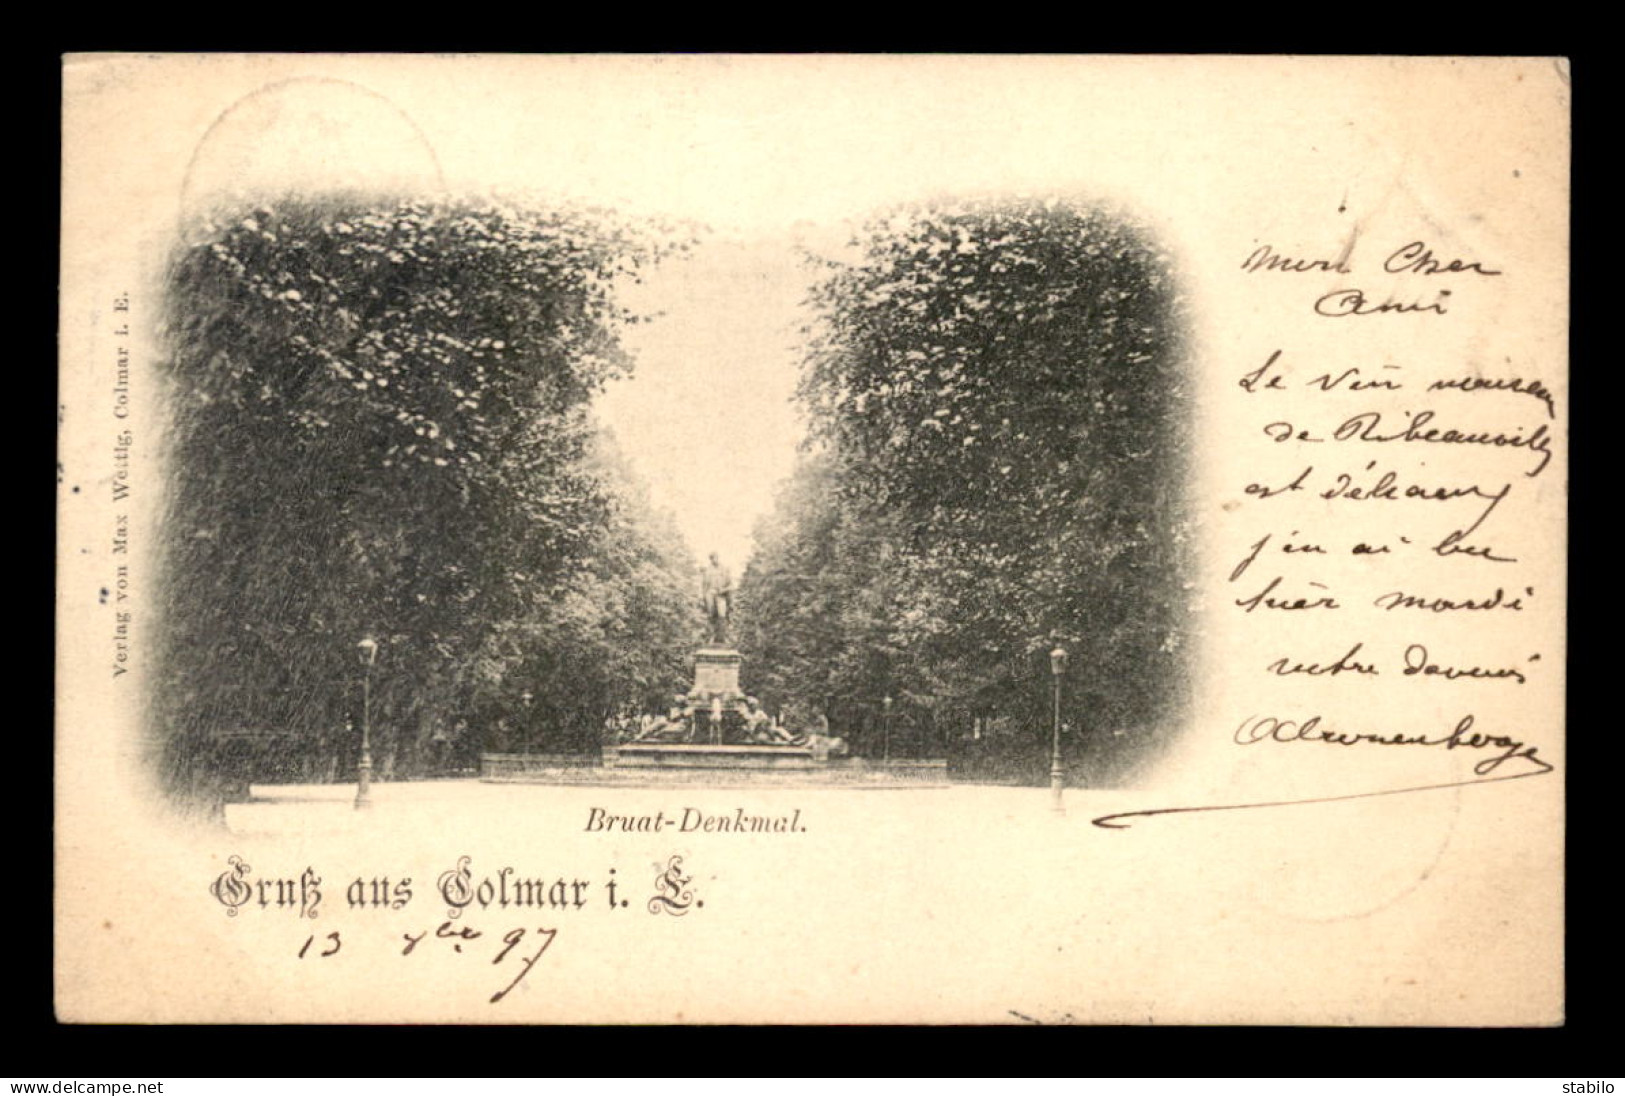 Verlag von Max Wettig, Colmar i. E.
Mon Cher
Ami
Le vin nouveau
de Ribeauvillé
est délicieux
j'en ai bu
hier mardi
votre dévoué
Bruat-Denkmal.
Gruß aus Colmar i. E.
13 xbre 97
www.delcampe.net
stabilo